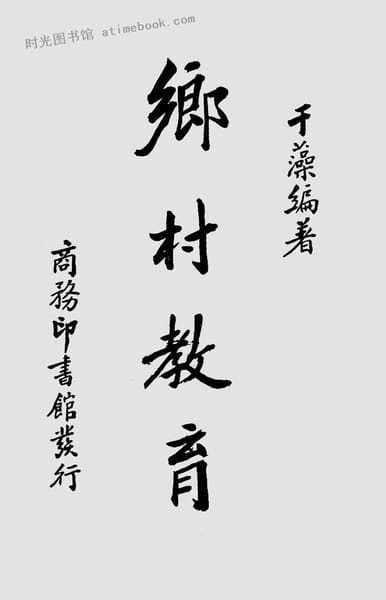 时光图书馆 atimebook.com
千藻編著
鄉村教育
商務印書館發行